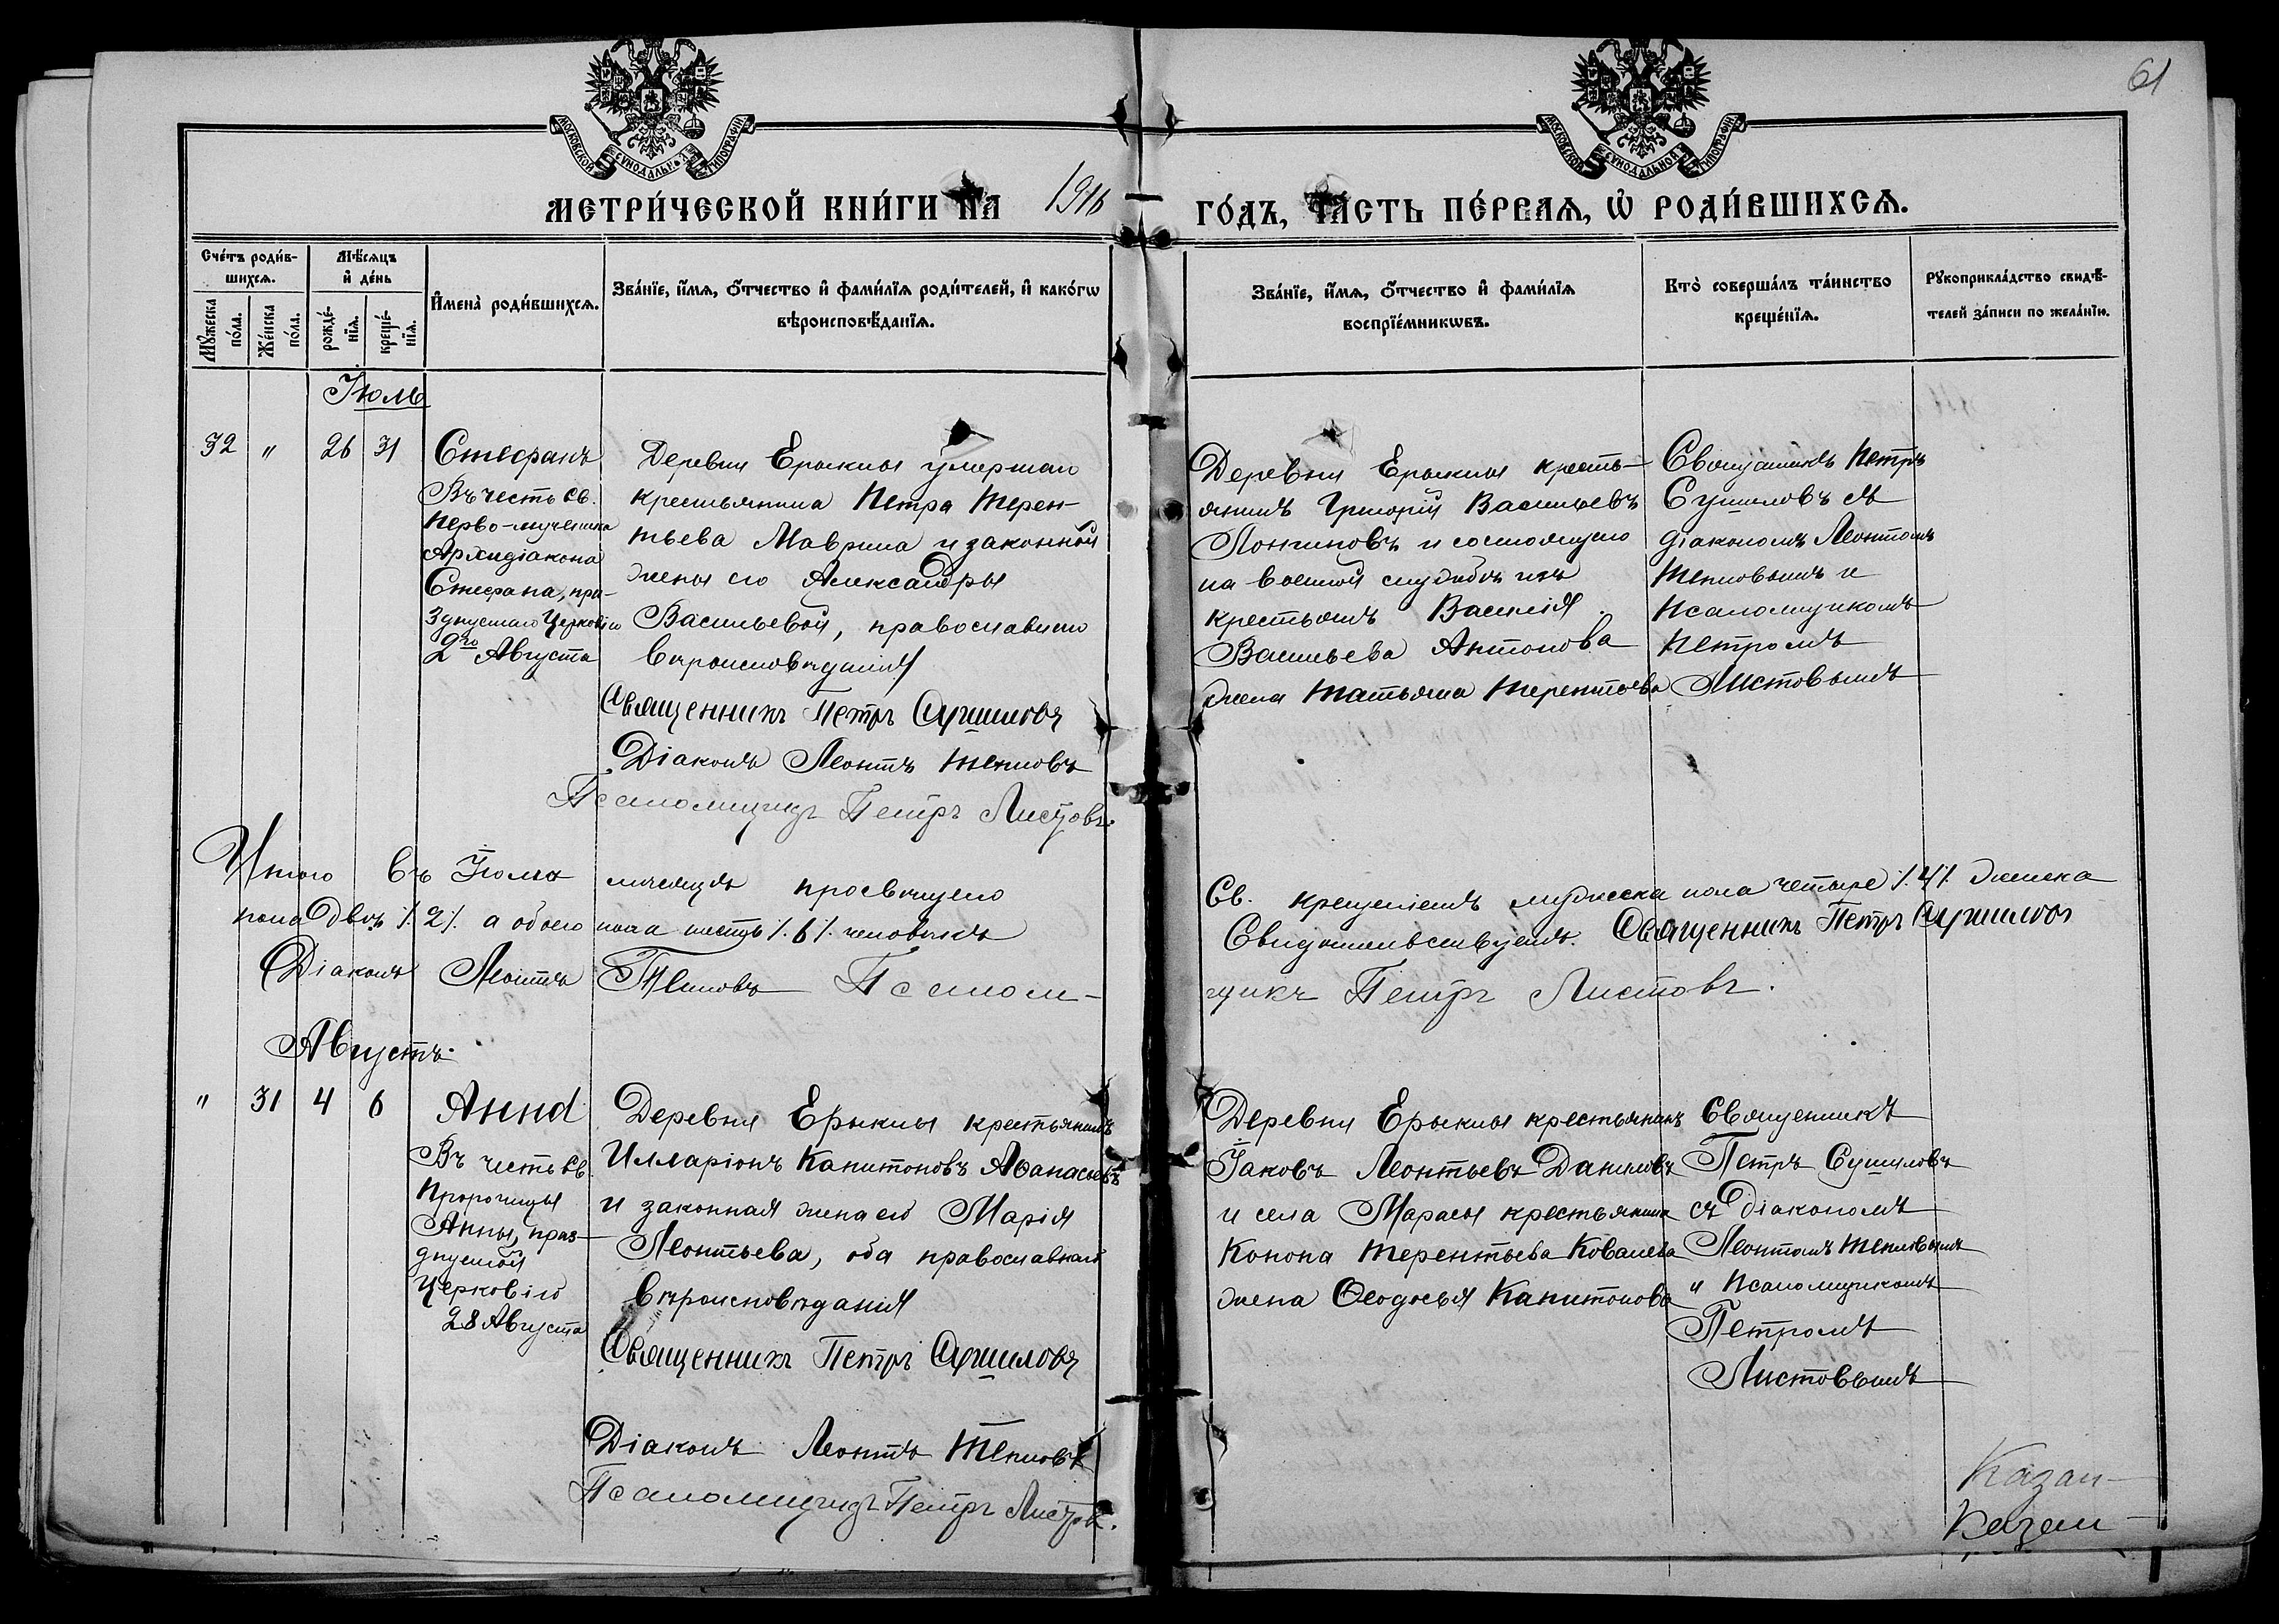 61
МОСКОВСКОЙ СУНОДАЛЬНОЙ ТИПОГРАФІИ
МОСКОВСКОЙ СУНОДАЛЬНОЙ ТИПОГРАФІИ
МЕТРИ́ЧЕСКОЙ КНИ́ГИ НА 1916 ГО́ДЪ, ЧА́СТЬ ПЕ́РВАѦ, Ѡ РОДИ́ВШИХСѦ.
Сче́тъ роди́в-
шихсѧ.
Мꙋ́жеска
по́ла.
Же́нска
по́ла.
Мѣ́сѧцъ
и҆ де́нь
рожде́-
нїѧ.
креще́-
нїѧ.
И҆мена̀ роди́вшихсѧ.
Зва́нїе, и҆́мѧ, ѻ҆́тчество и҆ фами́лїѧ роди́телей, и҆ како́гѡ
вѣроисповѣ́данїѧ.
Зва́нїе, и҆́мѧ, ѻ҆́тчество и҆ фами́лїѧ
воспрїе́мникѡвъ.
Кто̀ соверша́лъ та́инство
креще́нїѧ.
Рꙋкоприкла́дство свидѣ́-
телей за́писи по жела́нїю.
Іюль
32 " 26 31
Стефанъ
Въ честь св.
перво-мученика
Архидіакона
Стефана, пра-
зднуемаго Церковію
2го Августа
Деревни Ерыклы умершаго
крестьянина Петра Терен-
тьева Маврина и законной
жены его Александры
Васильевой, православнаго
вѣроисповѣданія
Священникъ Петръ Сушиловъ
Діаконъ Леонтъ Тепловъ
Псаломщикъ Петръ Листовъ.
Деревни Ерыклы кресть-
янинъ Григорій Васильевъ
Лонгиновъ и состоящаго
на военной службѣ изъ
крестьянъ Василія
Васильева Антонова
жена Татьяна Терентьева
Священникъ Петръ
Сушиловъ съ
діакономъ Леонтомъ
Тепловымъ и
псаломщикомъ
Петромъ
Листовымъ
Итого въ Іюлѣ мѣсяцѣ просвѣщено Св. крещеніемъ мужеска пола четыре /.4/. женска
пола двѣ /.2/. а обоего пола шесть /.6/. человѣкъ Свидѣтельствуемъ. Священникъ Петръ Сушиловъ
Діаконъ Леонтъ Тепловъ Псалом-
щикъ Петръ Листовъ.
Августъ.
" 31 4 6
Анна
Въ честь св.
Пророчицы
Анны, праз-
днуемой
Церковію
28 Августа
Деревни Ерыклы крестьянинъ
Илларіонъ Капитоновъ Аѳанасьевъ
и законная жена его Марія
Леонтьева, оба православнаго
вѣроисповѣданія
Священникъ Петръ Сушиловъ
Діаконъ Леонтъ Тепловъ
Псаломщикъ Петръ Листовъ.
Деревни Ерыклы крестьянинъ
Іаковъ Леонтьевъ Даниловъ
и села Марасы крестьянина
Конона Терентьева Ковалева
жена Ѳеодосья Капитонова
Священникъ
Петръ Сушиловъ
съ діакономъ
Леонтомъ Тепловымъ
и псаломщикомъ
Петромъ
Листовымъ
Казан-
Казан-